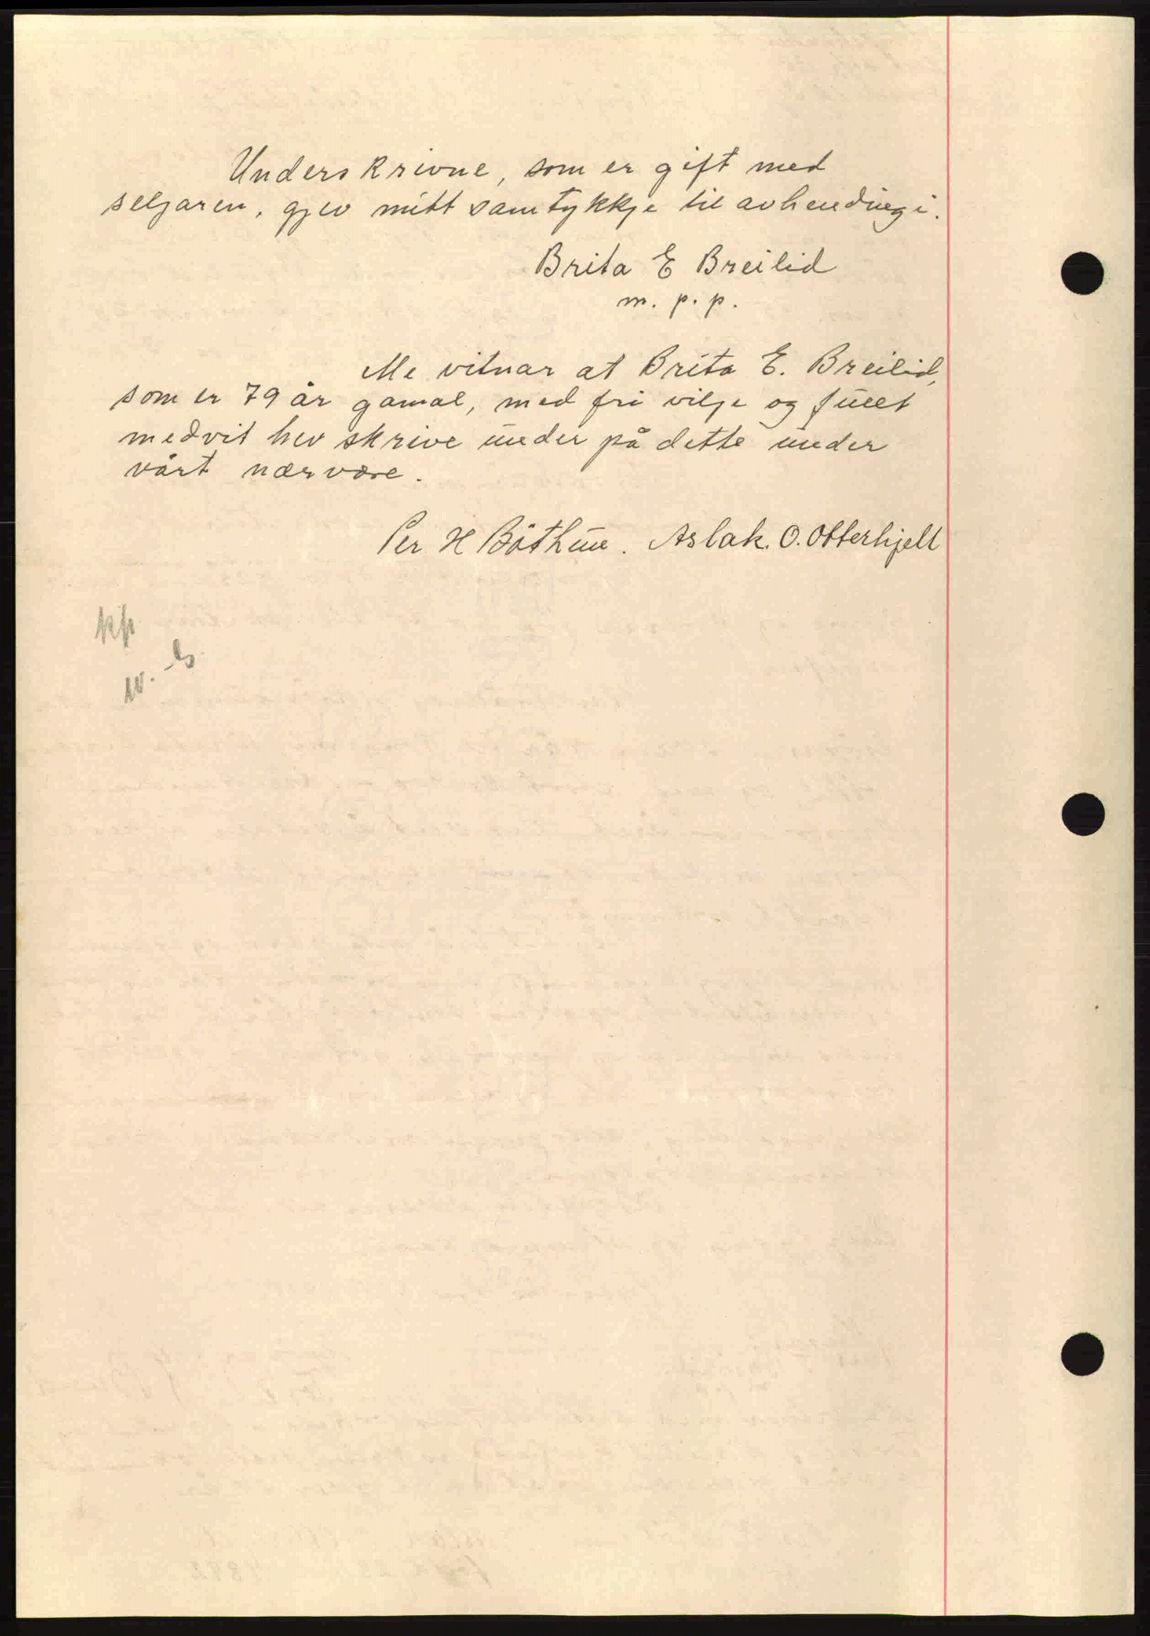 Underskrivne, som er gift med
seljaren, gjev mitt samtykkje til avhendingi.
Brita E Breilid
m. p. p.
Me vitnar at Brita E. Breilid,
som er 79 år gamal, med fri vilje og fullt
medvit hev skrive under på dette under
vårt nærvære.
Per H Böthun. Aslak. O. Otterhjell